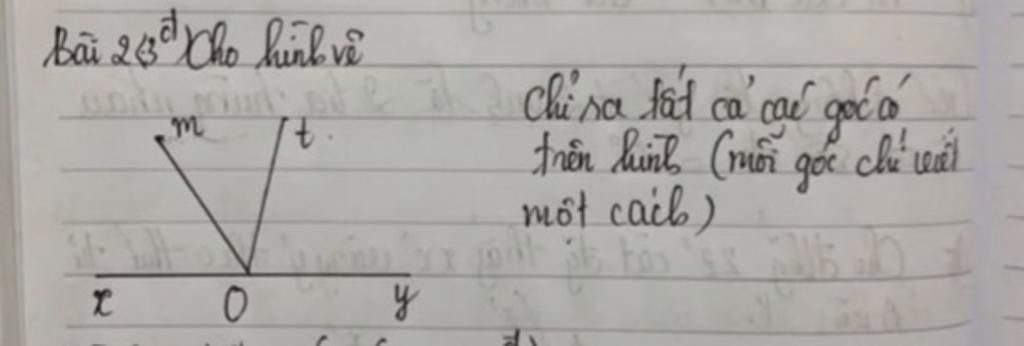 Bài 2(3đ) Cho hình vẽ
Chỉ ra tất cả các góc có
trên hình (mỗi góc chỉ viết
một cách)
m
t
x
O
y